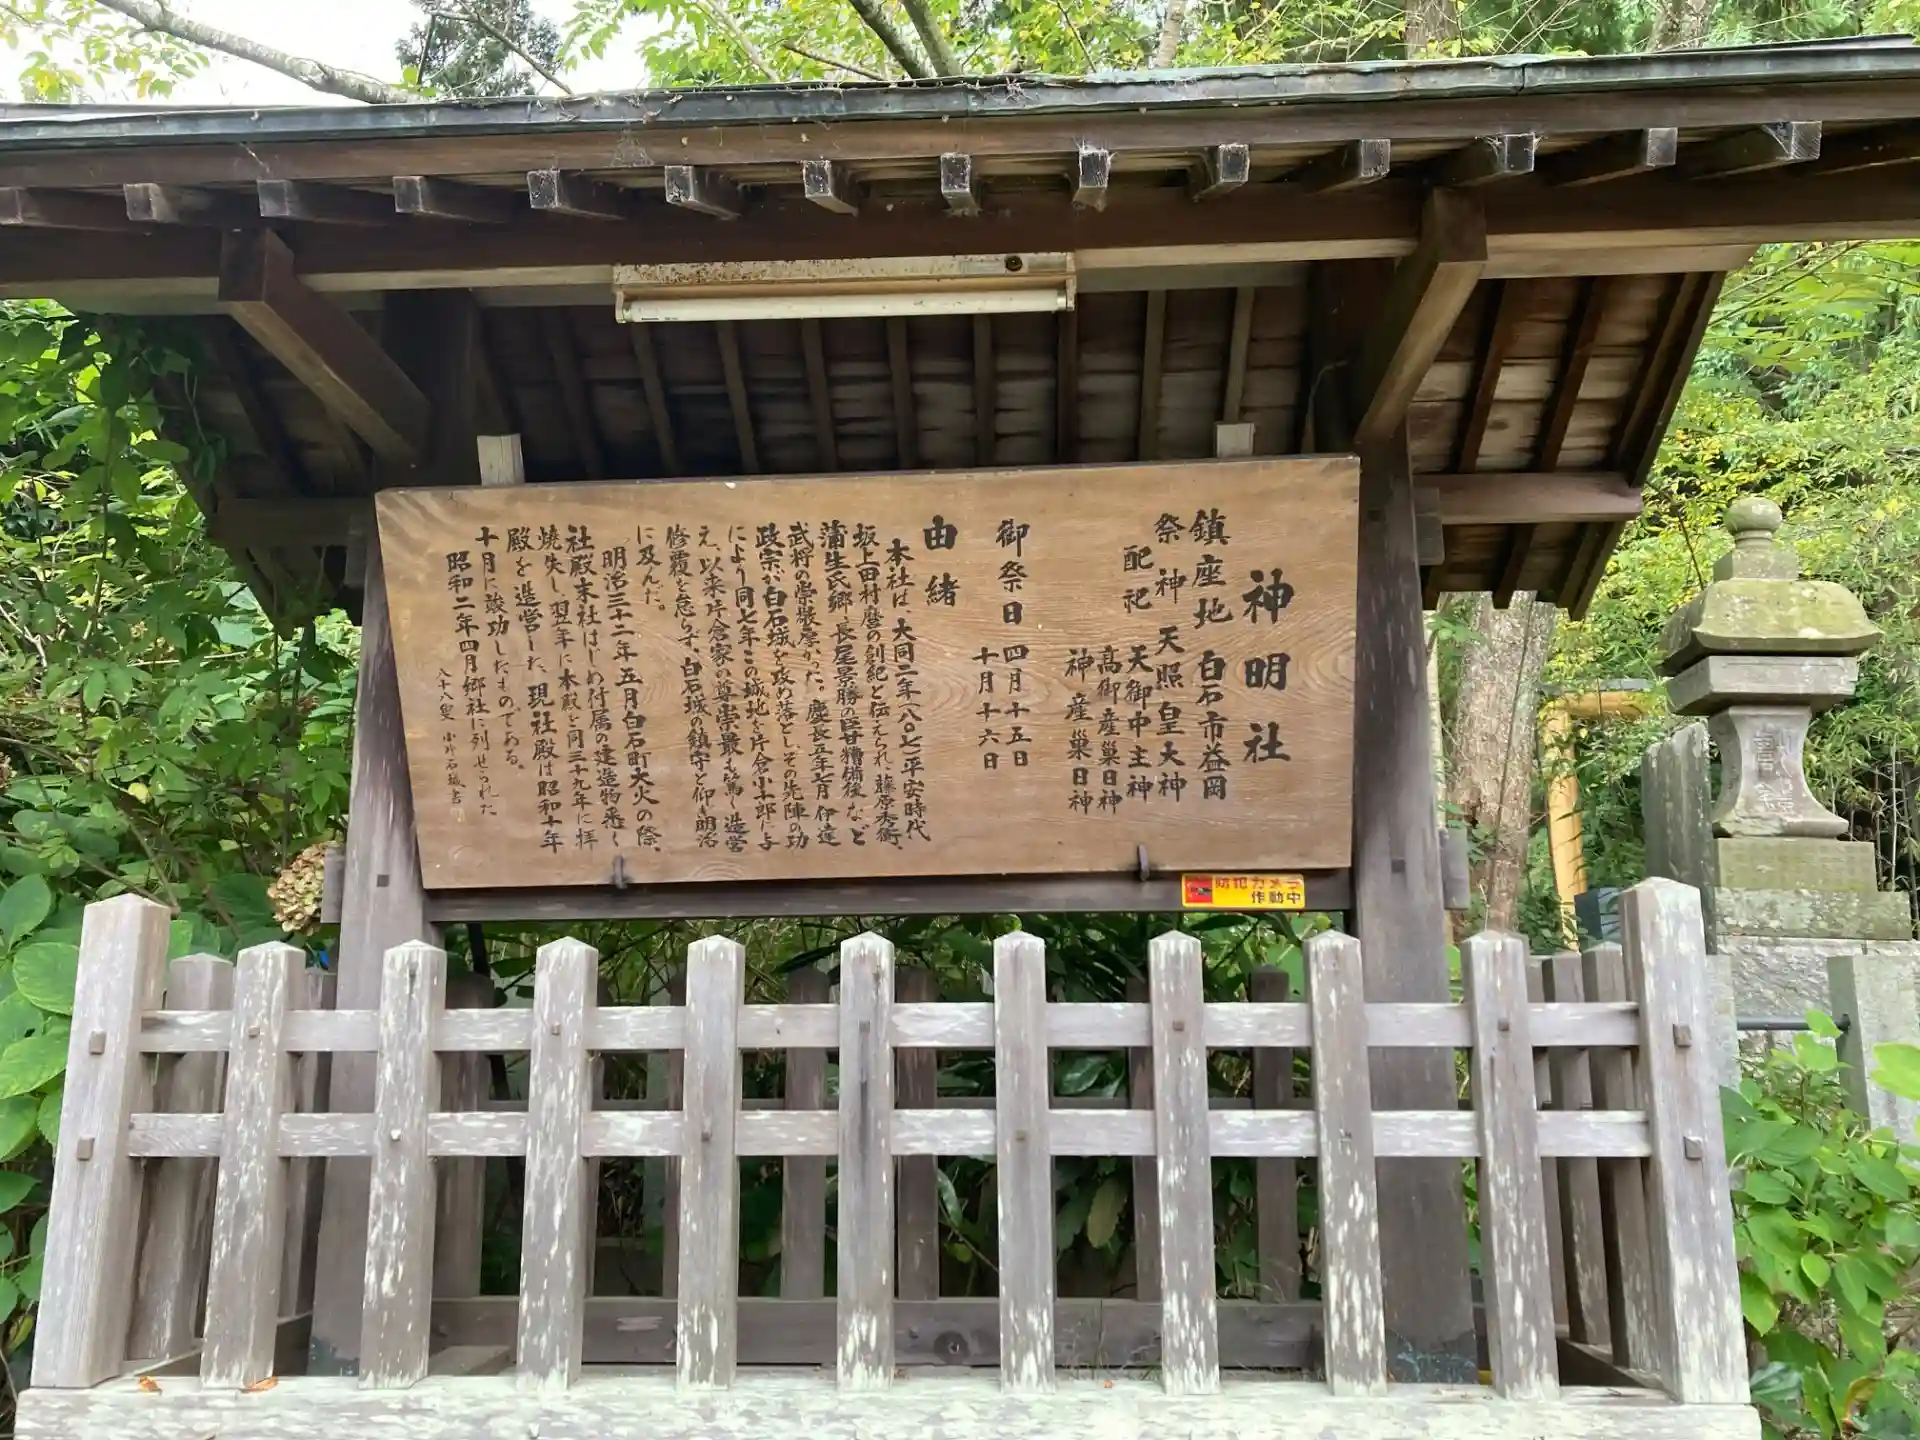 神明社
鎮座地 白石市益岡
祭神 天照皇大神
配祀 天御中主神
高御産巣日神
神産巣日神
御祭日 四月十五日
十月十六日
由緒
本社は、大同二年(八〇七)平安時代
坂上田村麿の創祀と伝えられ、藤原秀衡、
蒲生氏郷、長尾景勝の臣甘糟備後など
武将の崇敬厚かった。慶長五年七月伊達
政宗が白石城を攻め落とし、その先陣の功
により同七年この城地を片倉小十郎に与
え、以来片倉家の尊崇最も篤く造営
修覆を怠らず、白石城の鎮守と仰ぎ明治
に及んだ。
明治三十二年五月白石町大火の際、
社殿末社はじめ付属の建造物悉く
焼失し、翌年に本殿を同三十九年に拝
殿を造営した。現社殿は昭和十年
十月に竣功したものである。
昭和二年四月郷社に列せられた
八十八叟 書
防犯カメラ
作動中